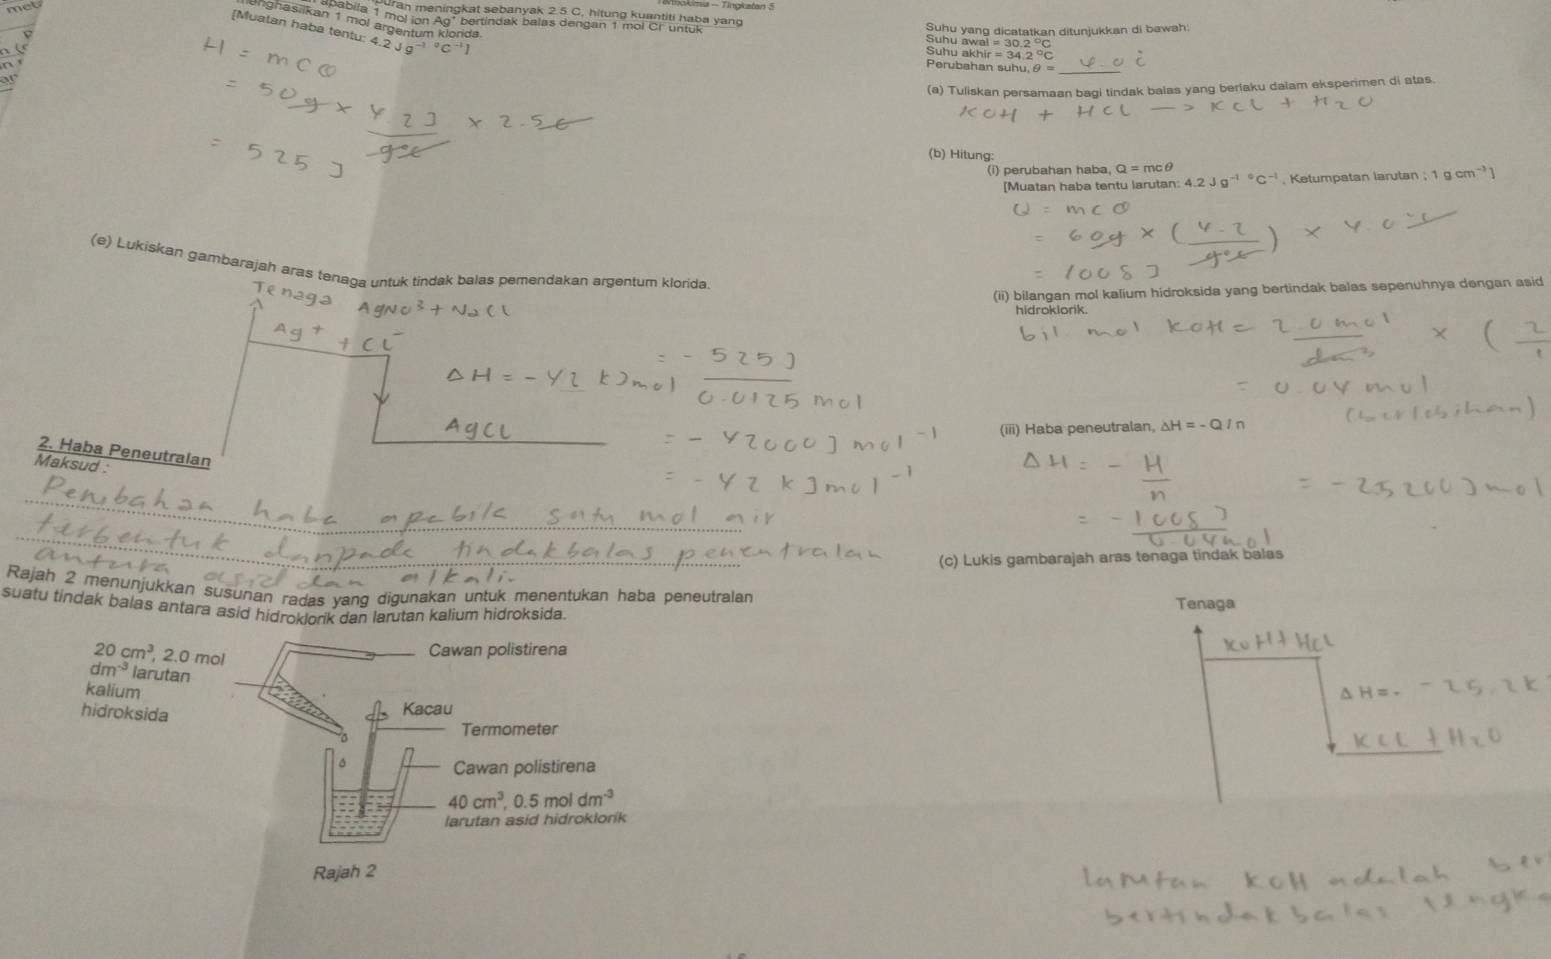 Termokimia – Tingkatan 5
puran meningkat sebanyak 2.5 C, hitung kuantiti haba yang
apabila 1 mol ion Ag⁺ bertindak balas dengan 1 mol Cl⁻ untuk
menghasilkan 1 mol argentum klorida.
[Muatan haba tentu: 4.2 J g⁻¹ °C⁻¹]
H = mcθ
= 50g × 4.2 J / g°C × 2.5 °C
= 525 J
(e) Lukiskan gambarajah aras tenaga untuk tindak balas pemendakan argentum klorida.
Tenaga
AgNO³ + NaCl
Ag⁺ + Cl⁻
ΔH = -42 kJmol
AgCl
= - 525 J / 0.0125 mol
= - 42000 J mol⁻¹
= - 42 kJ mol⁻¹
2. Haba Peneutralan
Maksud :
Perubahan haba apabila satu mol air
terbentuk daripada tindakbalas penentralan
antara asid dan alkali.
Rajah 2 menunjukkan susunan radas yang digunakan untuk menentukan haba peneutralan
suatu tindak balas antara asid hidroklorik dan larutan kalium hidroksida.
20 cm³, 2.0 mol
dm⁻³ larutan
kalium
hidroksida
Cawan polistirena
Kacau
Termometer
Cawan polistirena
40 cm³, 0.5 mol dm⁻³
larutan asid hidroklorik
Rajah 2
Suhu yang dicatatkan ditunjukkan di bawah:
Suhu awal = 30.2 °C
Suhu akhir = 34.2 °C
Perubahan suhu, θ = 4.0 °C
(a) Tuliskan persamaan bagi tindak balas yang berlaku dalam eksperimen di atas.
KOH + HCl -> KCl + H2O
(b) Hitung:
(i) perubahan haba, Q = mcθ
[Muatan haba tentu larutan: 4.2 J g⁻¹ °C⁻¹, Ketumpatan larutan ; 1 g cm⁻³]
Q = mcθ
= 60g × (4.2 / g°C) × 4.0 °C
= 1008 J
(ii) bilangan mol kalium hidroksida yang bertindak balas sepenuhnya dengan asid
hidroklorik.
bil mol KOH = 2.0 mol / dm³ × (
= 0.04 mol
(berlebihan)
(iii) Haba peneutralan, ΔH = - Q / n
ΔH = - H / n
= - 1008 J / 0.04 mol
= -25200 J mol
(c) Lukis gambarajah aras tenaga tindak balas
Tenaga
KOH + HCl
ΔH = - -25.2 k
KCl + H2O
larutan KOH adalah ber
bertindak balas lengka